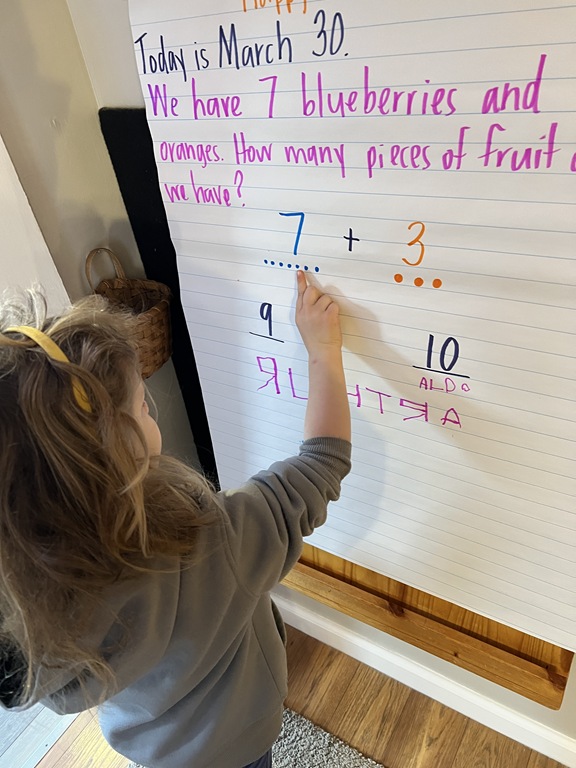 Happy
Today is March 30.
We have 7 blueberries and
oranges. How many pieces of fruit
we have?
7 + 3
9 10
ALDO